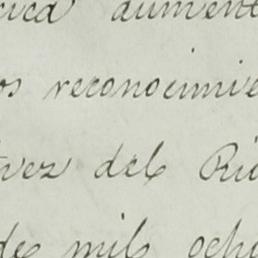 aument
os reconocimie
vez del Rio
de mil ocho